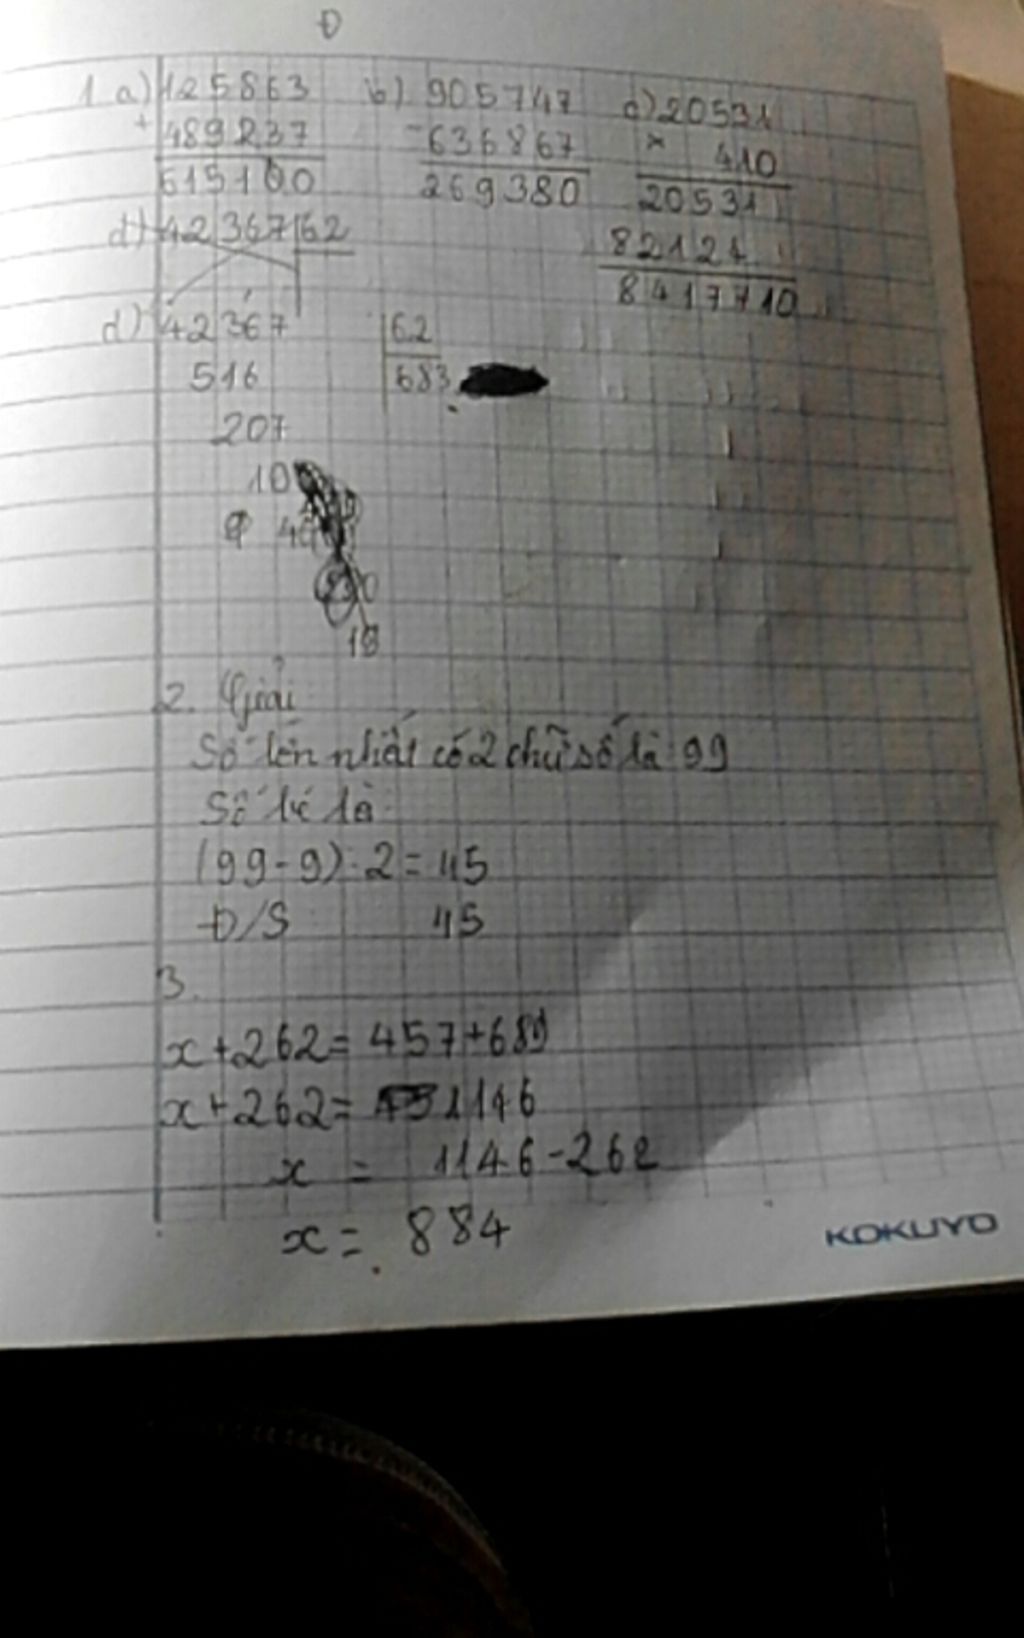 Đ
1 a) 125863 b) 905747 c) 20531
+ 489237 - 636867 × 410
615100 269380 20531
d) 42367 62 82124
8417710
d) 42367 62
516 683
207
10
18
2. Giải
Số lớn nhất có 2 chữ số là 99
Số bé là
(99-9):2=45
Đ/S 45
3.
x+262=457+689
x+262= 1146
x = 1146-262
x = 884
KOKUYO